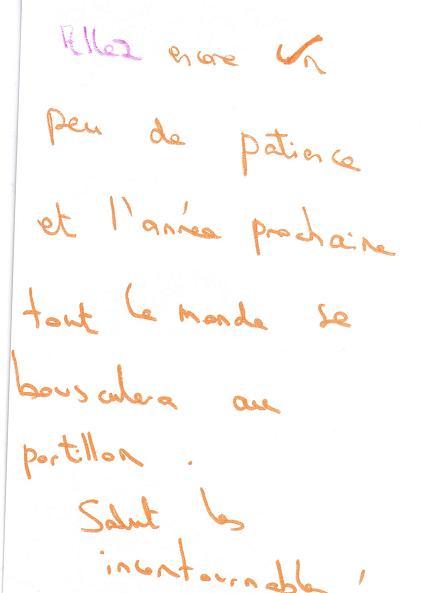 Allez encore un
peu de patience
et l'année prochaine
tout le monde se
bousculera au
portillon.
Salut les
incontournables !